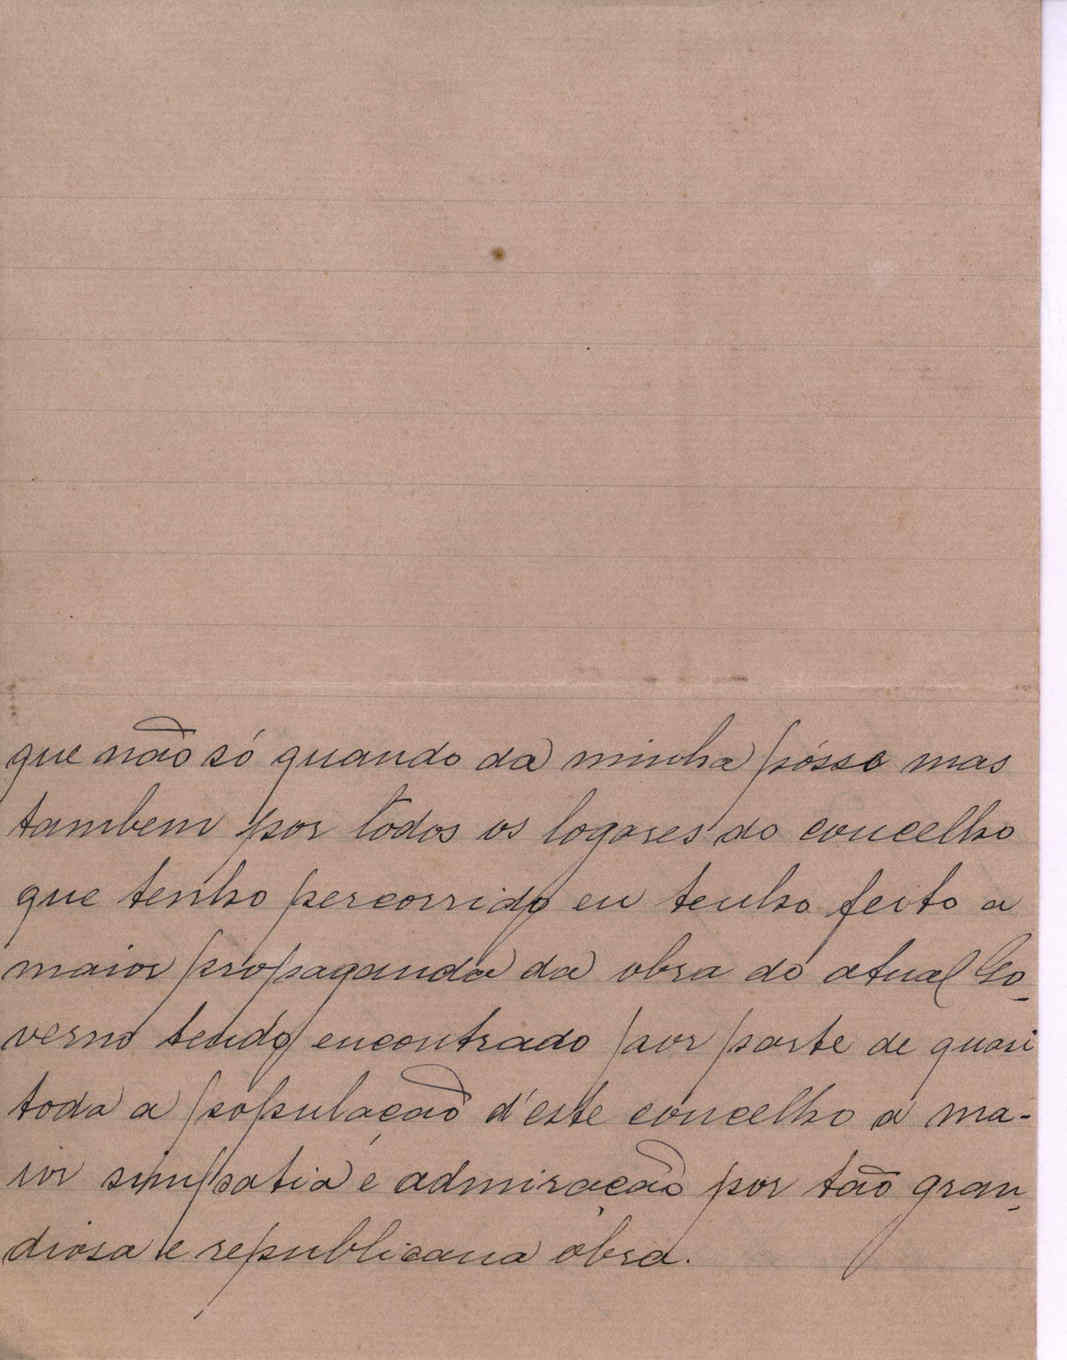 que não só quando da minha pósse mas
tambem por todos os logares do concelho
que tenho percorrido eu tenho feito a
maior propaganda da obra do atual Go-
verno tendo encontrado por parte de quasi
toda a população d'este concelho a ma-
ior simpatia e admiração por tão gran-
diosa e republicana obra.